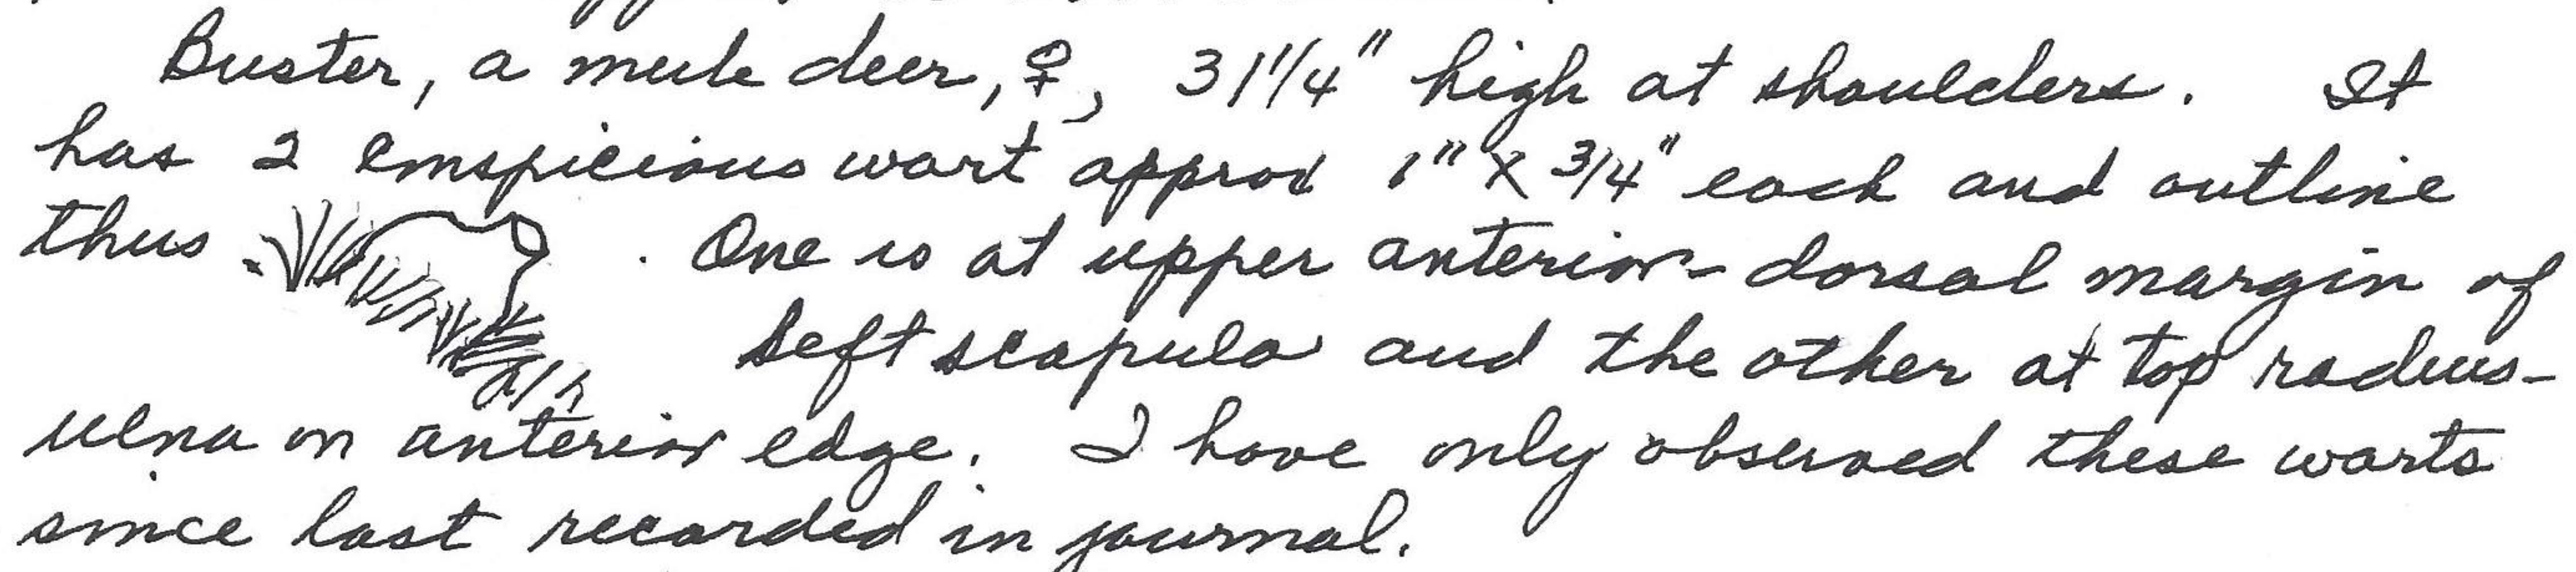 Buster, a mule deer, ♀, 31 1/4" high at shoulders. It
has 2 conspicious wart approx 1" x 3/4" each and outline
thus . One is at upper anterior-dorsal margin of
left scapula and the other at top radius-
ulna on anterior edge. I have only observed these warts
since last recorded in journal.